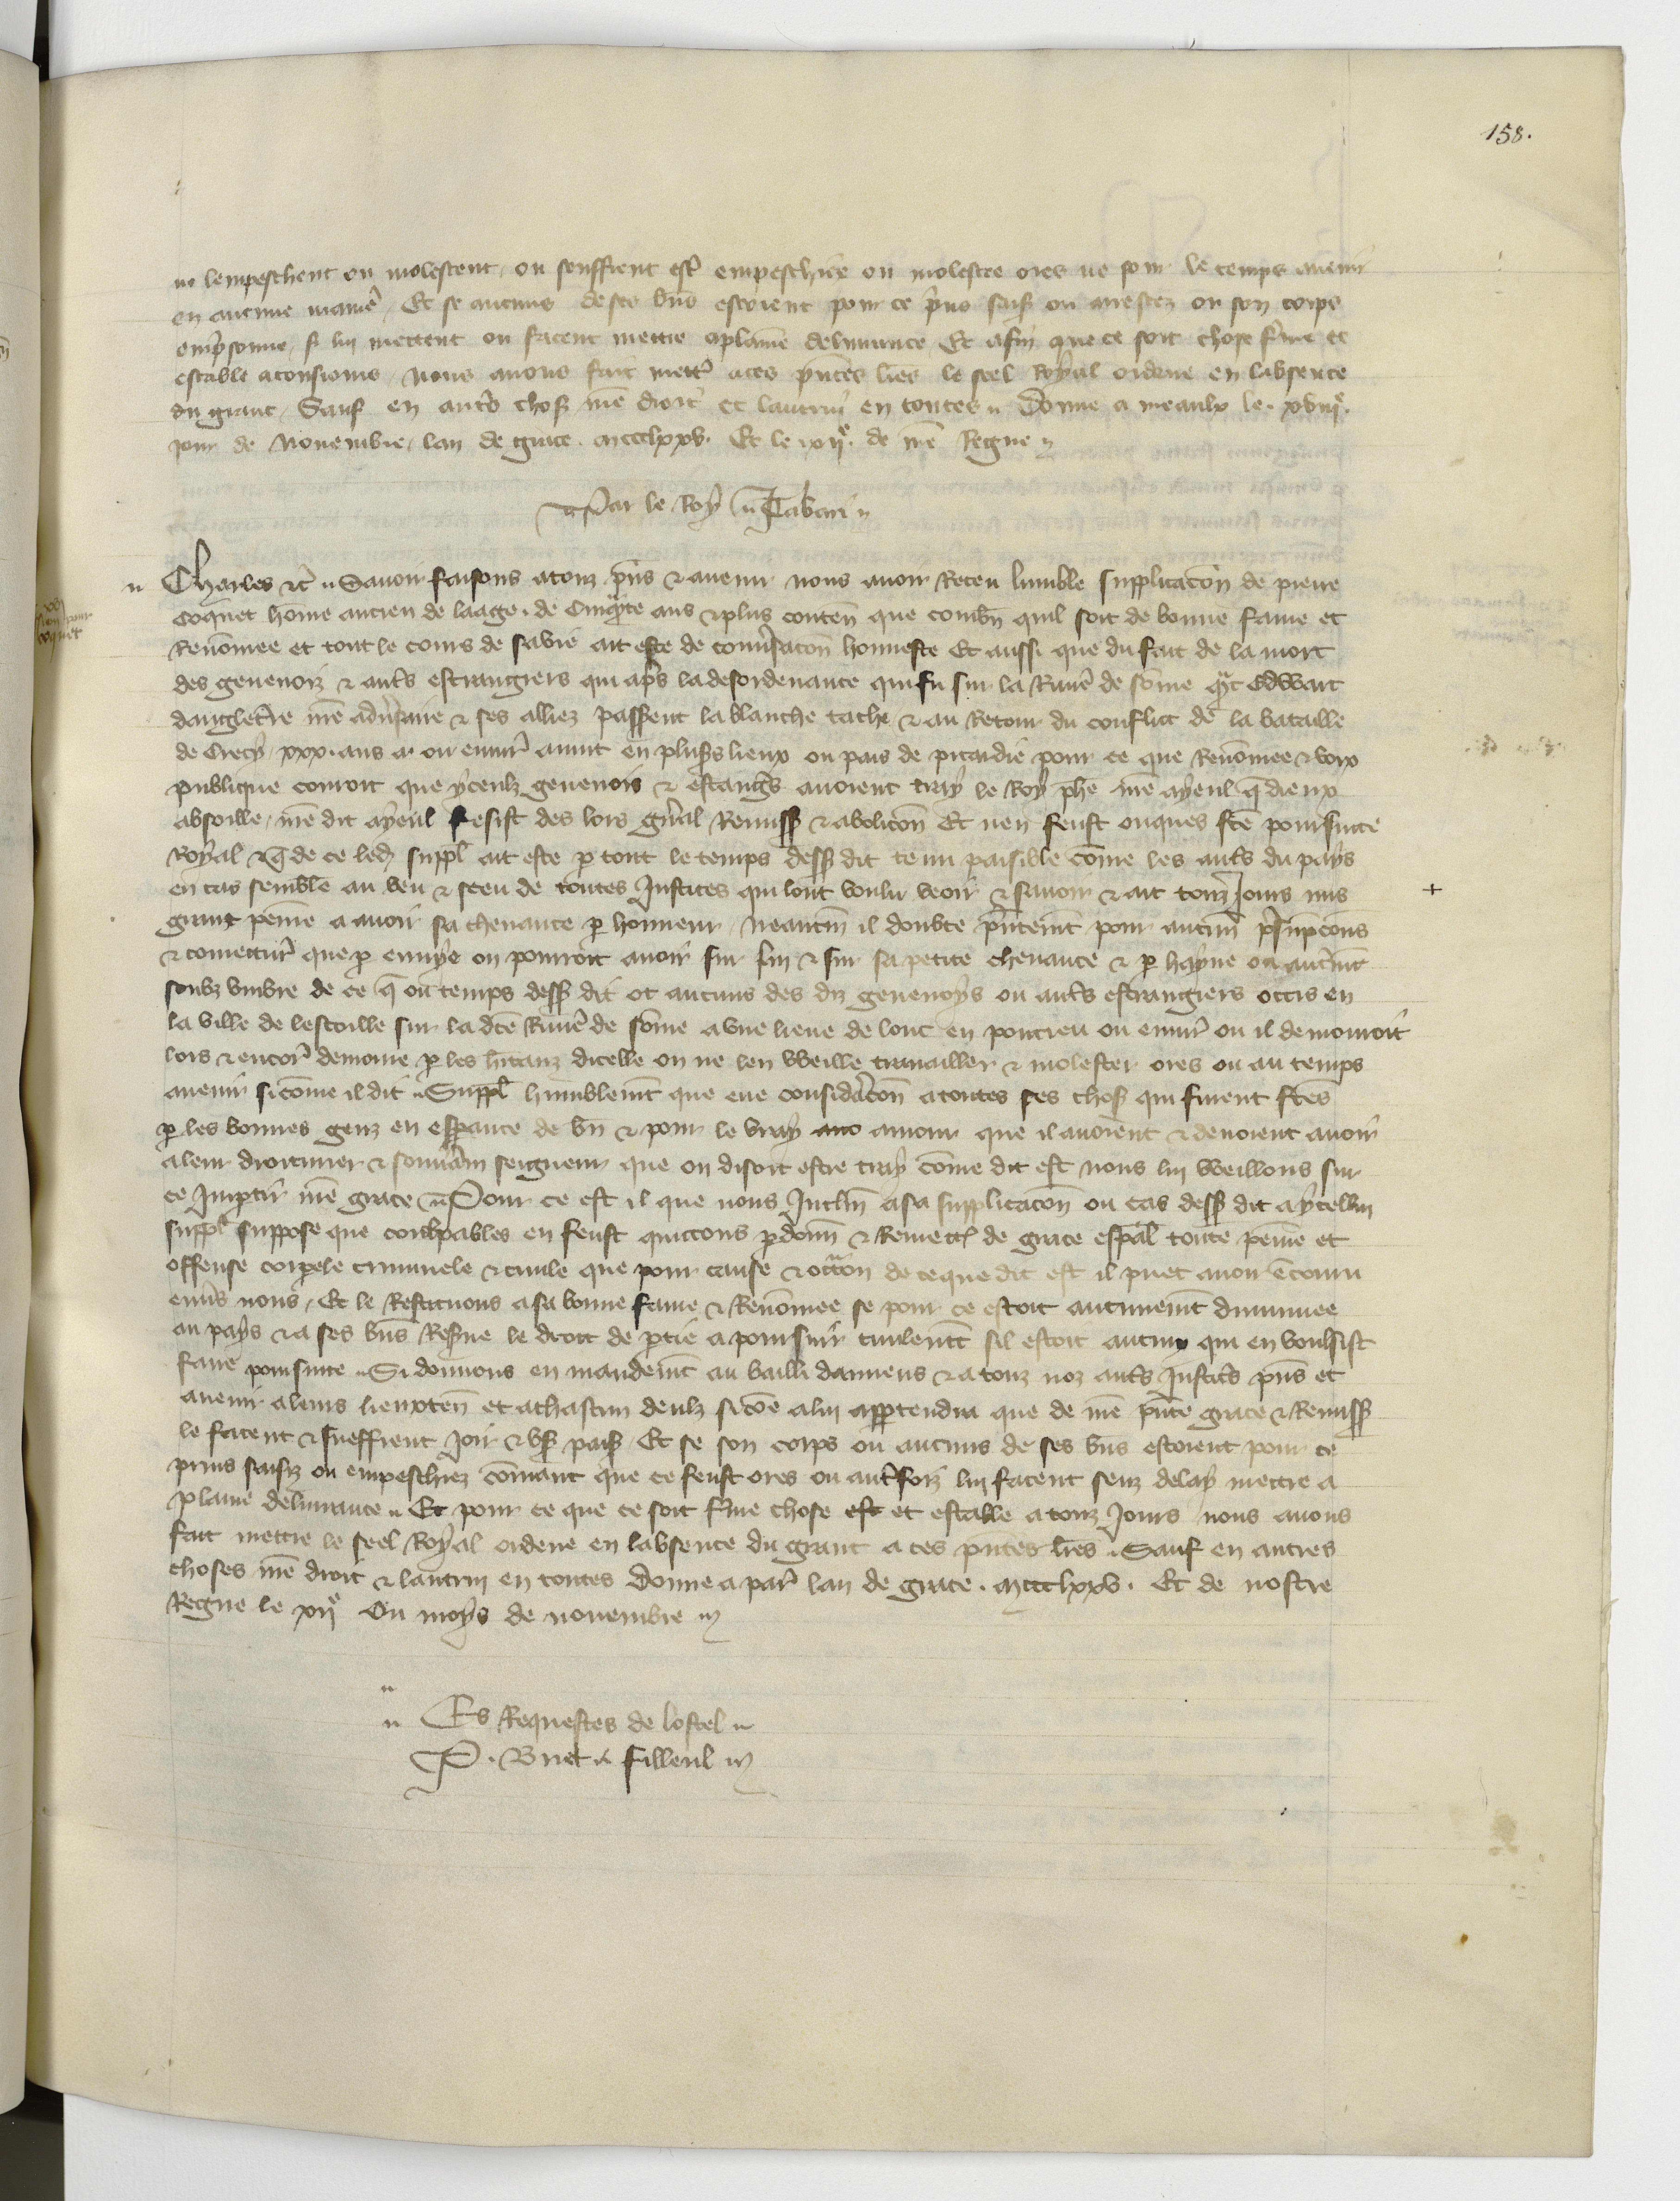 158.
ne lempeschent ou molestent ou seuffrent estr̃ empeschiee ou molestee ores ne pour le temps avenir
en aucune manie᷑ Et se aucuns de ses bn̄s estoient pour ce p̃ns saisiz ou arrestez ou son corps
emp̃sonne si lui mettent ou facent mettre a plaine delivrance Et afin que ce soit chose ferme et
estable a tousiours Nous avons fait mettr̃ a ces p̃ntes lr̃es le seel Royal ordene en labsence
du grant Sauf en autr̃s choses nr̃e droit et lautruy en toutes Donne a meaulx le xviije
jour de Novembre lan de grace mccclxxv. Et le xije de nr̃e Regne
Par le Roy Tabari
Charles etc̃ Savoir faisons a touz p̃ns & avenir nous avoir Receu lumble supplicacõn de pierre
coquet home ancien de laage de Cinq̃nte ans & plus contenñ que combn̄ quil soit de bonne fame et
Renõmee et tout le cours de sa vie ait este de conṽsacõn honneste Et aussi que du fait de la mort
des genevoiz & autr̃s estrangiers qui ap̃s la desordenance qui fu sur la Riviẽ de sõme q̃nt Edwart
dangleterre nr̃e adṽsaire & ses alliez passerent la blanche tache & au Retour du conflict de la bataille
de Crecy xxx. ans a ou environ avint en plusrs lieux ou pais de picardie pour ce que Renõmee & voix
publique couroit que yceulz genevois & estrangr̃s avoient tray le Roy phe nr̃e ayeul q̃ dieux
absoille nr̃e dit ayeul feist des lors gñal Remiss̃ & abolicõn Et nen feust onques fcẽ poursuite
Royal & q̃ de ce led suppl̃ ait este p tout le temps dess̃ dit tenu paisible cõme les autr̃s du pays
en cas semblẽ au veu & sceu de toutes Justices qui lont voulu veoir & savoir & ait touz Jours mis
grant peinne a avoir sa chevance p honneur Neantm̃ il doubte p̃ntemt̃ pour aucunẽ p̃sũpcõns
& coniectur̃ que p envye on pourroit avoir sur lui & sur sa petite chevance & p hayne ou autrem̃t
soubz umbre de ce q̃ ou temps dess̃ dit ot aucuns des diz genevoys ou autr̃s estrangiers occis en
la ville de lestoille sur la dcẽ Riviẽ de sõme a une lieue de lonc en pontieu ou environ ou il demouroit
lors & encor̃ demoure p les h̃itanz dicelle on ne len vveille travailler & molester ores ou au temps
avenir si cõme il dit Suppl̃ humblem̃t que eue considẽracõn a toutes ses chos̃ qui furent fcẽs
p les bonnes genz en espance de bn̄ & pour le vray amour que il avoient & devoient avoir
a leur droiturier & souverain seigneur que on disoit estre tray cõme dit est nous lui vveillons sur
ce Imptir nr̃e grace Pour ce est il que nous Inclin̄ a sa supplicacõn ou cas dess̃ dit a ycellui
suppl̃ suppose que coulpables en feust quictons pdonn̄ & Remectõ de grace esp̃al toute peinne et
offense corporele criminele & civile que pour cause & occ̃õn de ce que dit est il puet avoir ẽcouru
envr̃s nous Et le Restituons a sa bonne fame & Renõmee se pour ce estoit aucunem̃t diminuee
au pays & a ses bn̄s Reserve le droit de ptie a poursuir civilemt̃ sil estoit aucun qui en voulsist
faire poursuite Si donnons en mandem̃t au bailli damiens & a touz noz autr̃s Justic̃s p̃ns et
avenir a leurs lieuxten̄ et a chascun deulz si cõe a lui apptendra que de nr̃e p̃nte grace & Remiss̃
le facent & sueffrent Joir & user paisib̃ Et se son corps ou aucuns de ses bn̄s estoient pour ce
prins saisiz ou empeschiez cõmant que ce feust ores ou autr̃foiz lui facent senz delay mettre a
plaine delivrance Et pour ce que ce soit fẽme chose et estable a touz Jours nous avons
fait mettre le seel Royal ordene en labsence du grant a ces p̃ntes lr̃es Sauf en autres
choses nr̃e droit & lautruy en toutes Donne a par̃ lan de grace mccclxxv. Et de nostre
Regne le xije Ou moys de novembre
Es Requestes de lostel
P. Bnet Filleul